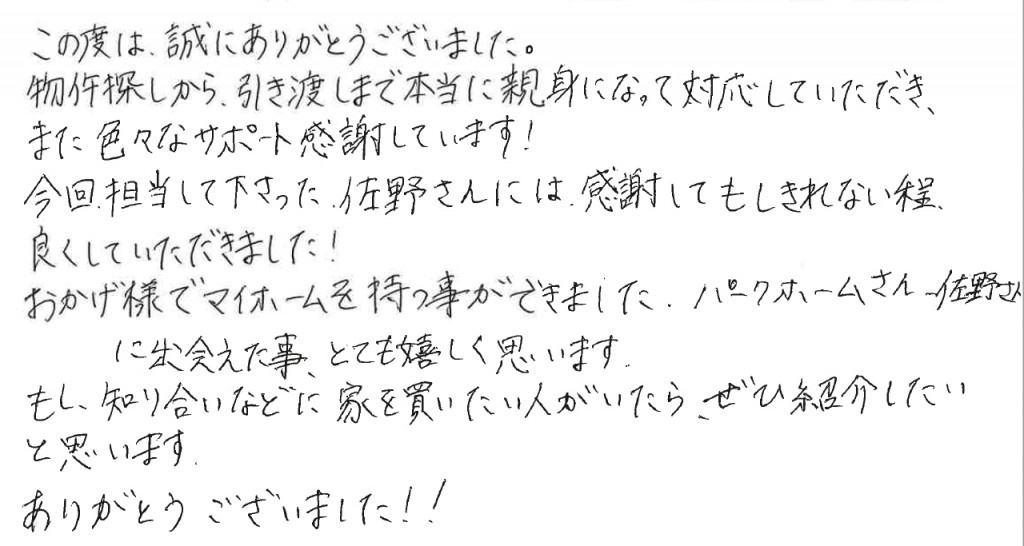 この度は、誠にありがとうございました。
物件探しから、引き渡しまで本当に親身になって対応していただき、
また色々なサポート感謝しています!
今回、担当して下さった、佐野さんには、感謝してもしきれない程、
良くしていただきました!
おかげ様でマイホームを持つ事ができました。パークホームさん、佐野さん
に出会えた事、とても嬉しく思います。
もし、知り合いなどに家を買いたい人がいたら、ぜひ紹介したい
と思います。
ありがとうございました!!